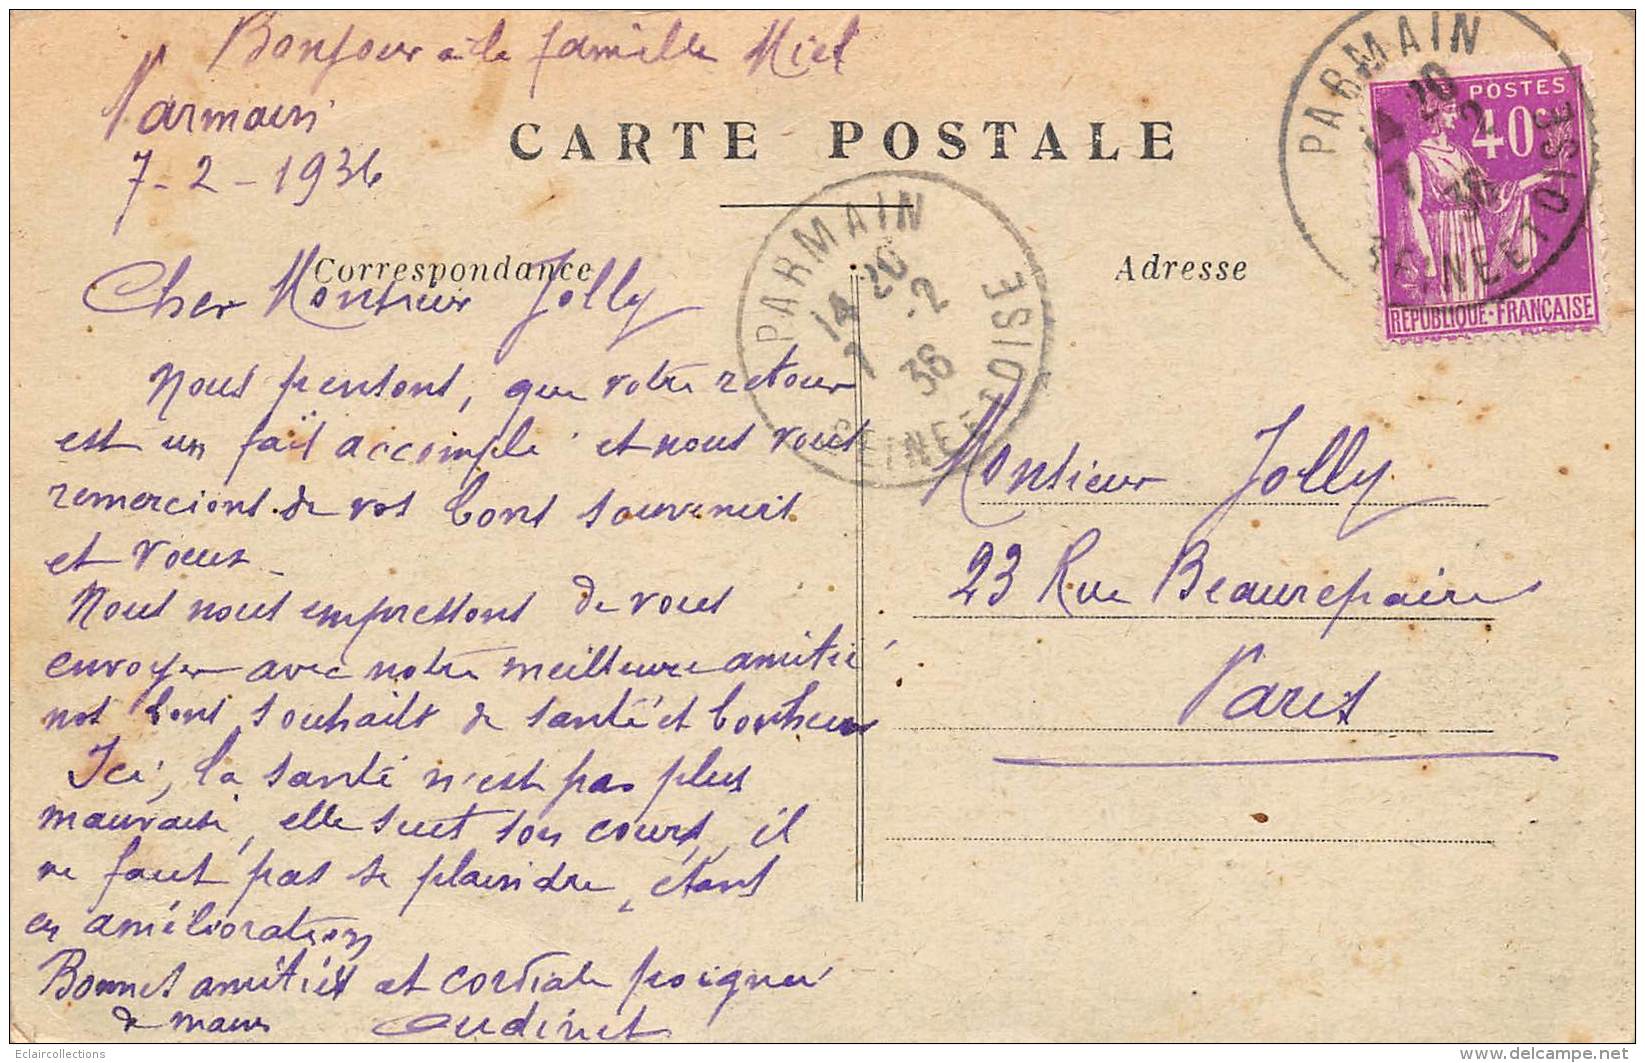 Bonjour à la famille Miel
Parmain
7-2-1936
CARTE POSTALE
Correspondance
Adresse
Cher Monsieur Jolly
Nous pensons, que votre retour
est un fait accompli et nous vous
remercions de vos bons souvenirs
et vœux.
Nous nous empressons de vous
envoyer avec notre meilleure amitié
nos bons souhaits de santé et bonheur
Ici, la santé n'est pas plus
mauvaise, elle suit son cours, il
ne faut pas se plaindre, étant
en amélioration
Bonnes amitiés et cordiale poignée
de mains Oudinet
Monsieur Jolly
23 Rue Beaurepaire
Paris
PARMAIN
14 20
7 -2
36
SEINE ET OISE
PARMAIN
14 20
7 -2
36
SEINE ET OISE
POSTES
40c
REPUBLIQUE-FRANÇAISE
Eclaircollections
www.delcampe.net